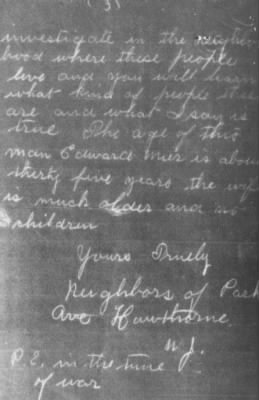 (3)
investigate in the neighbor
hood where these people
live and you will learn
what kind of people these
are and what I say is
true The age of this
man Edward is about
thirty five years the wife
is much older and no
children
Yours Truely
Neighbors of Park
Ave Hawthorne
N.J.
P.S. in the time
of war